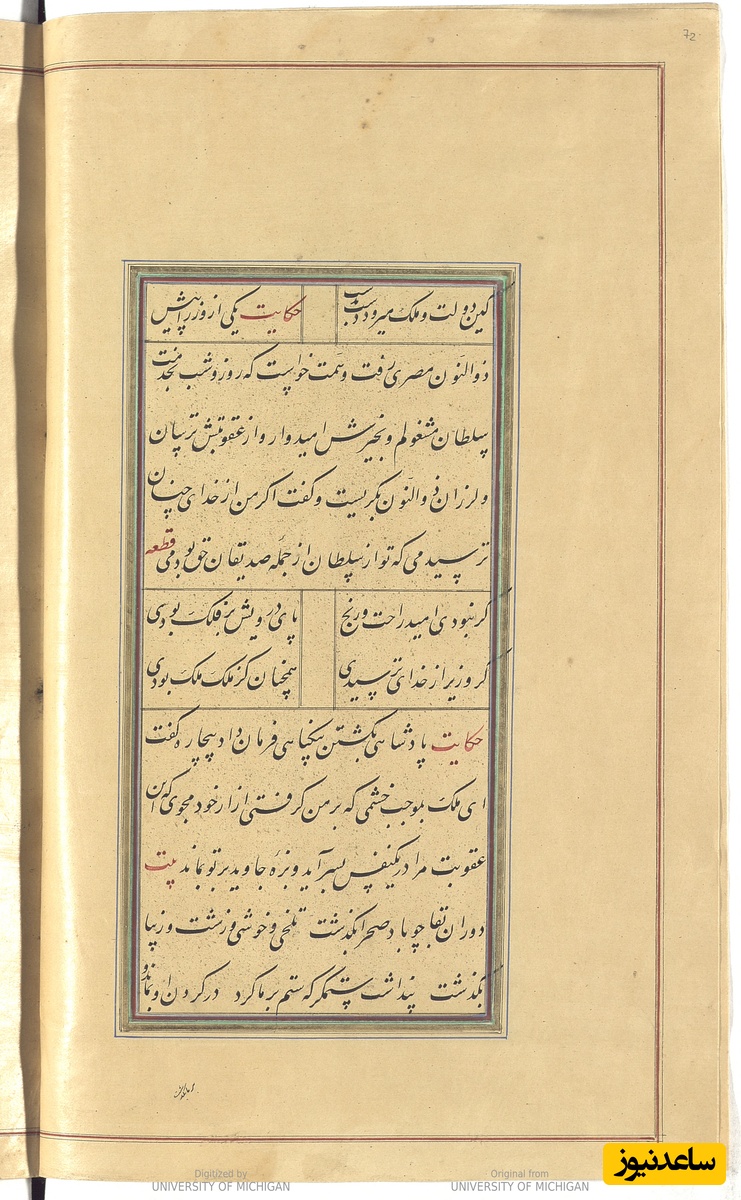 72
کین دولت و ملک میرود دست بدست حکایت یکی از وزرا پیش
ذوالنون مصری رفت و همت خواست که روز و شب بخدمت
سلطان مشغولم و بخیرش امیدوار و از عقوبتش ترسان
و لرزان ذوالنون بگریست و گفت اگر من از خدای چنان
ترسیدمی که تو از سلطان از جمله صدیقان حق بودمی قطعه
گر نبودی امید راحت و رنج پای درویش بر فلک بودی
گر وزیر از خدای ترسیدی همچنان کز ملک ملک بودی
حکایت پادشاهی بکشتن بیگناهی فرمان داد بیچاره گفت
ای ملک بموجب خشمی که بر من گرفتی آزار خود مجوی که این
عقوبت مرا در یکنفس بسر آید و بزه جاوید بر تو بماند بیت
دوران بقا چو باد صحرا بگذشت تلخی و خوشی و زشت و زیبا
بگذشت پنداشت ستمگر که ستم بر ما کرد در گردن او بماند و
ساعدنیوز
Digitized by Original from
UNIVERSITY OF MICHIGAN UNIVERSITY OF MICHIGAN